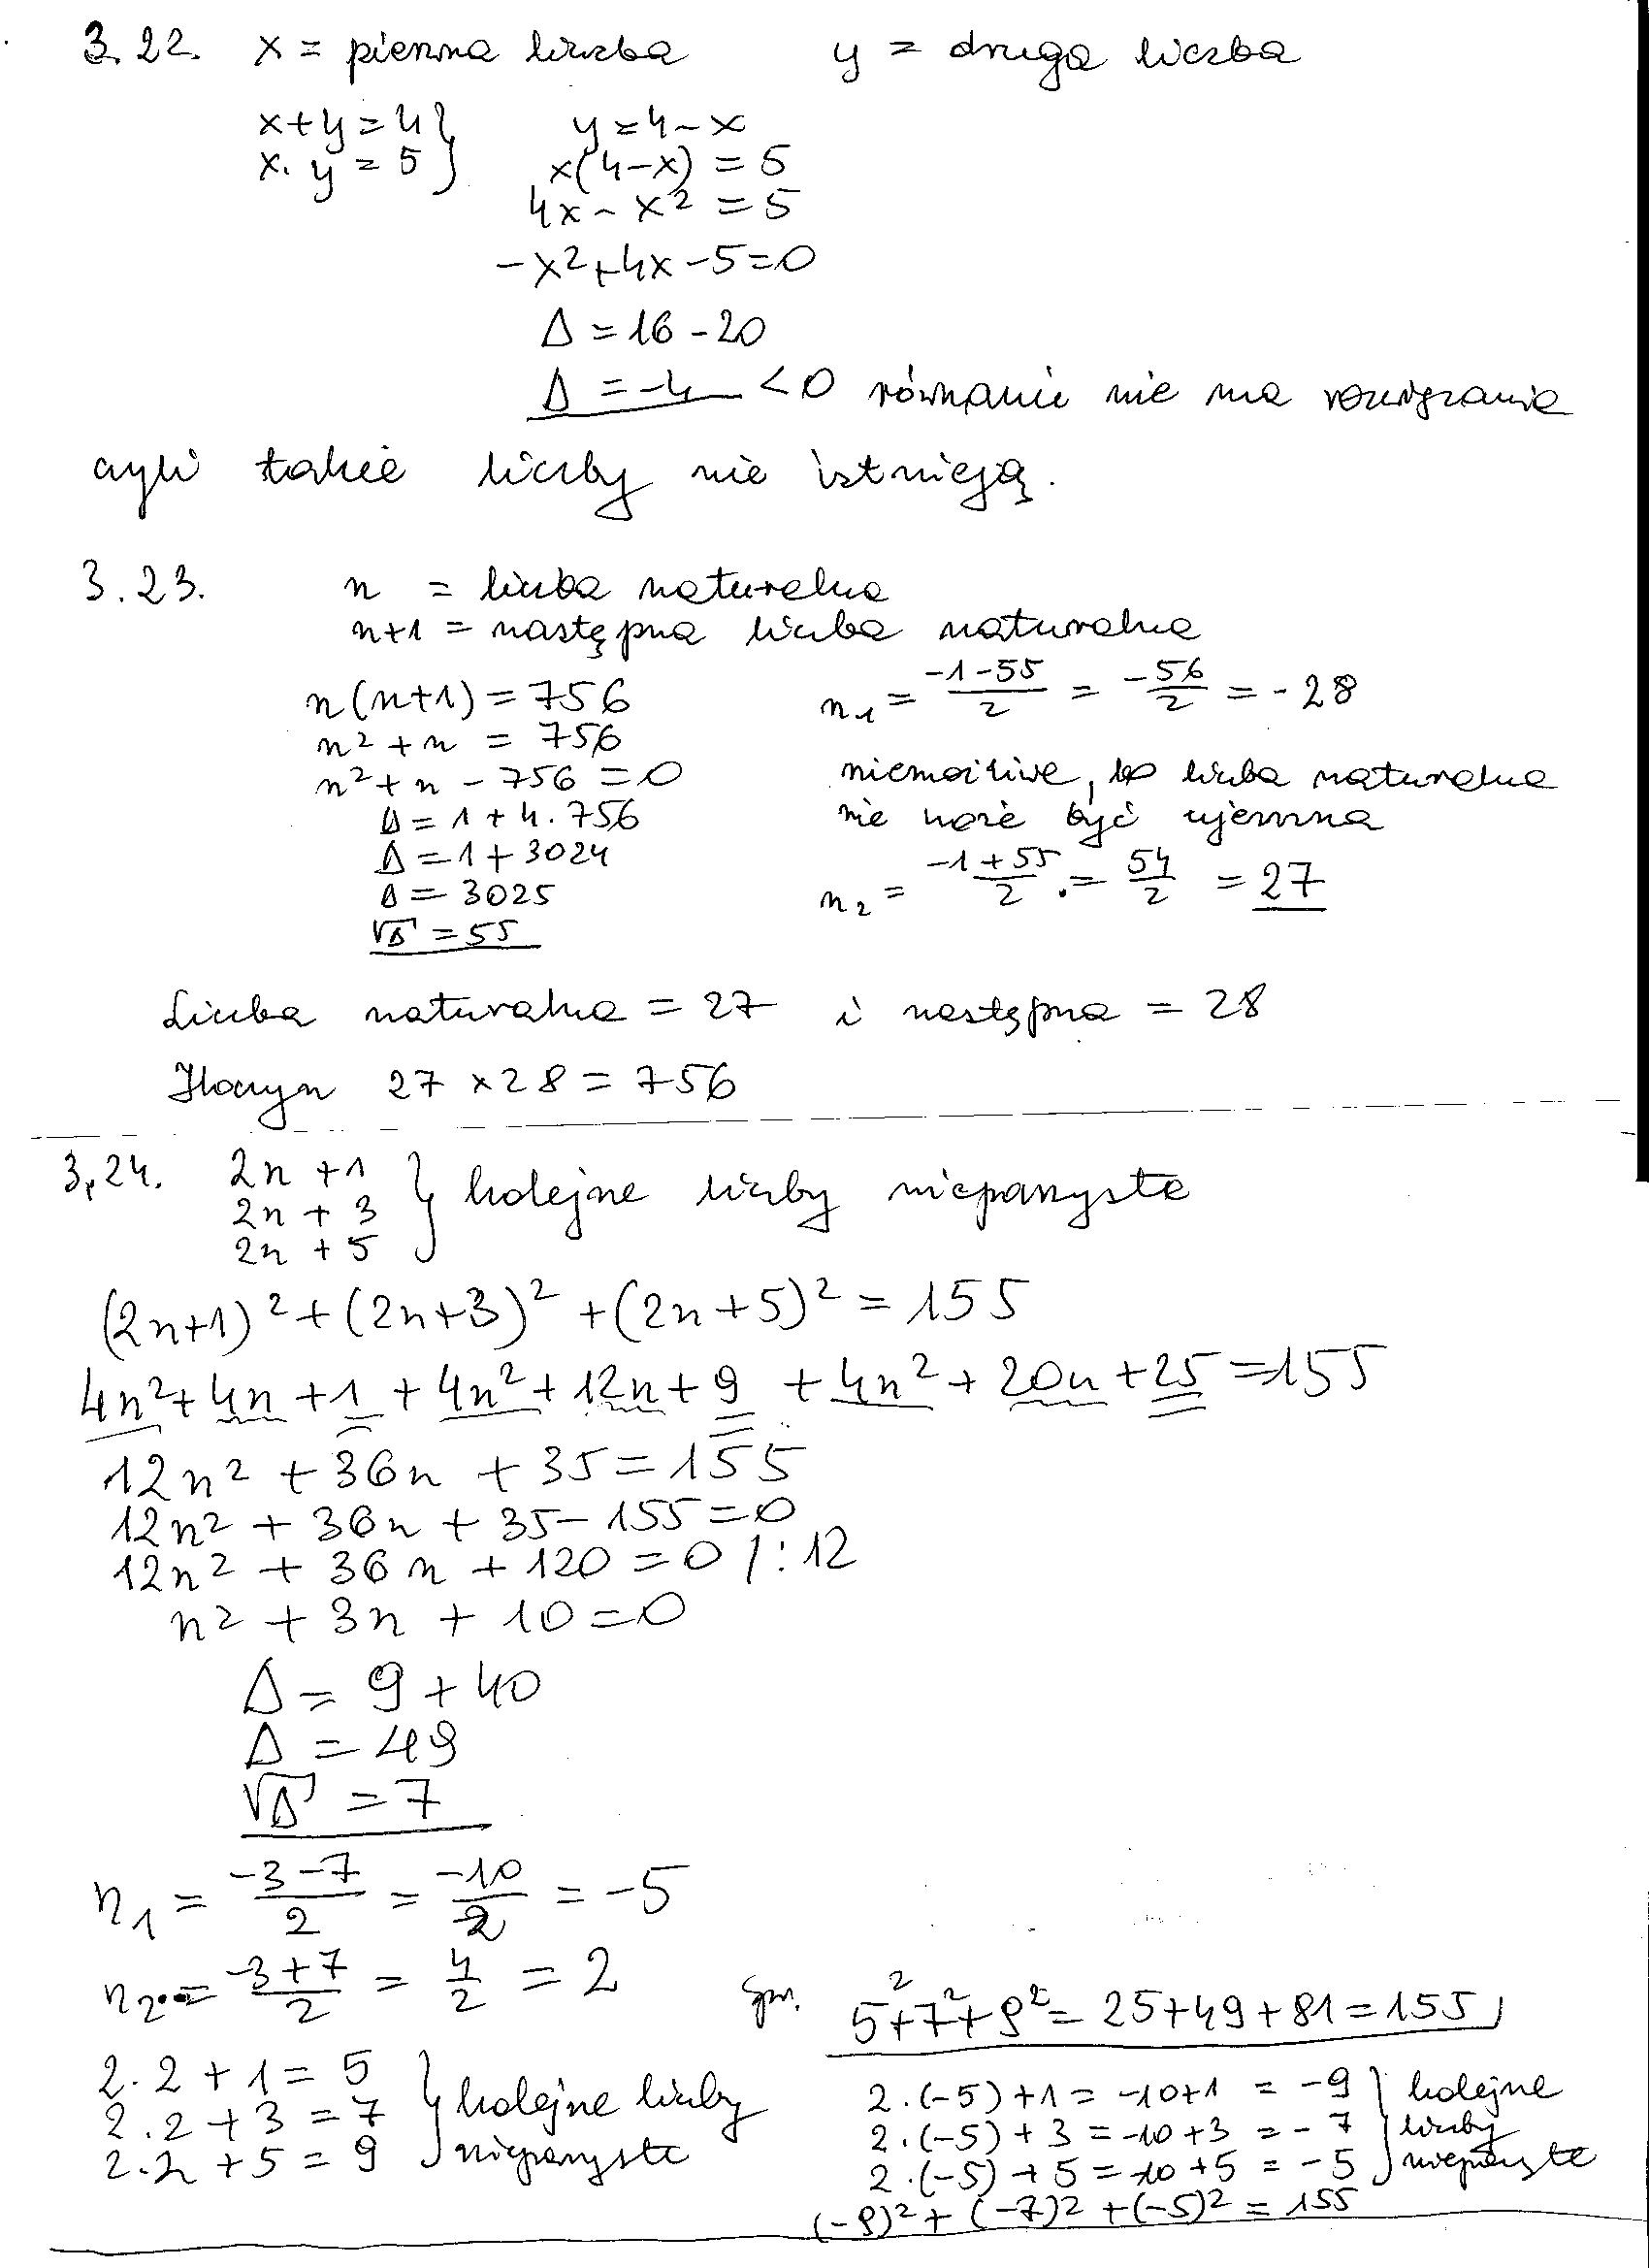 3.22. x = pierwsza liczba y = druga liczba
x+y=4 } y=4-x
x·y=5 } x(4-x)=5
4x-x²=5
-x²+4x-5=0
Δ=16-20
Δ=-4 <0 równanie nie ma rozwiązania
czyli takie liczby nie istnieją.
3.23. n = liczba naturalna
n+1 = następna liczba naturalna
n(n+1)=756
n²+n = 756
n²+n-756=0
Δ=1+4·756
Δ=1+3024
Δ=3025
√Δ=55
n₁ = (-1-55)/2 = -56/2 = -28
niemożliwe, bo liczba naturalna
nie może być ujemna
n₂ = (-1+55)/2 = 54/2 = 27
Liczba naturalna = 27 i następna = 28
Iloczyn 27 x 28 = 756
3.24. 2n+1 }
2n+3 } kolejne liczby nieparzyste
2n+5 }
(2n+1)²+(2n+3)²+(2n+5)²=155
4n²+4n+1+4n²+12n+9+4n²+20n+25=155
12n²+36n+35=155
12n²+36n+35-155=0
12n²+36n+120=0 /:12
n²+3n+10=0
Δ=9+40
Δ=49
√Δ=7
n₁ = (-3-7)/2 = -10/2 = -5
n₂ = (-3+7)/2 = 4/2 = 2
Spr. 5²+7²+9²=25+49+81=155
2·2+1=5 }
2·2+3=7 } kolejne liczby
2·2+5=9 } nieparzyste
2·(-5)+1=-10+1=-9 } kolejne
2·(-5)+3=-10+3=-7 } liczby
2·(-5)+5=-10+5=-5 } nieparzyste
(-9)²+(-7)²+(-5)²=155